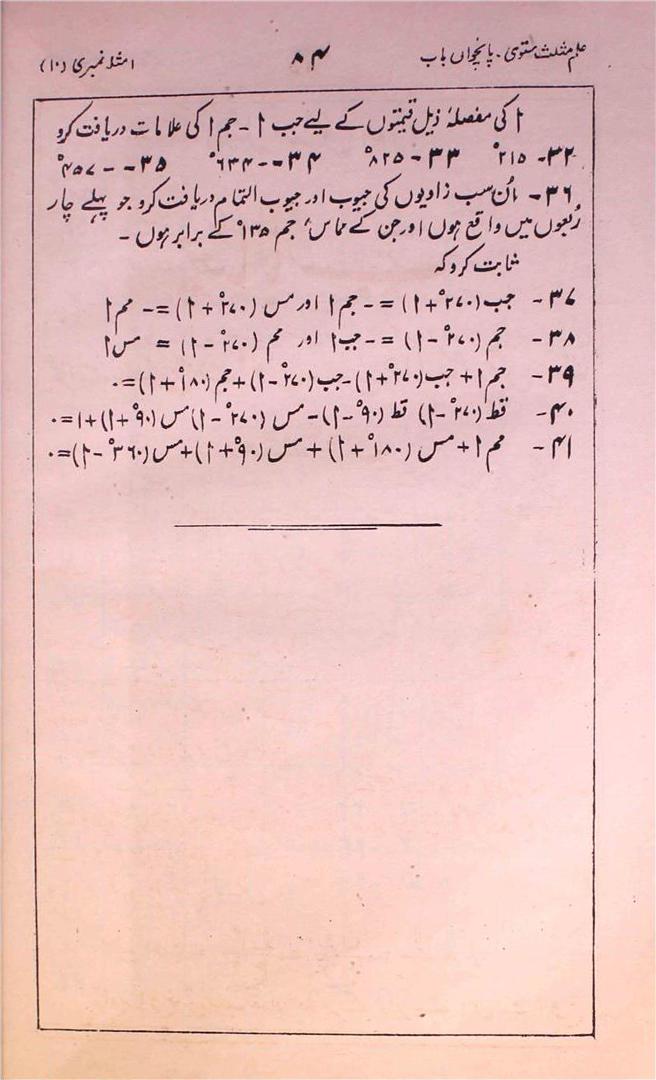 علم مثلث مستوی۔ پانچواں باب ۸۴ امثلہ نمبری (۱۰)
أ کی مفصلۂ ذیل قیمتوں کے لیے جب أ - جم أ کی علامات دریافت کرو
۳۲- ۲۱۵° ۳۳- ۸۲۵° ۳۴- -۶۳۴° ۳۵- -۴۵۷°
۳۶- اُن سب زاویوں کی جیوب اور جیوب التمام دریافت کرو جو پہلے چار
رُبعوں میں واقع ہوں اور جن کے مماس، جم ۱۳۵° کے برابر ہوں -
ثابت کرو کہ
۳۷- جب (۲۷۰° + أ) = - جم أ اور مس (۲۷۰° + أ) = - مم أ
۳۸- جم (۲۷۰° - أ) = - جب أ اور مم (۲۷۰° - أ) = مس أ
۳۹- جم أ + جب (۲۷۰° + أ) - جب (۲۷۰° - أ) + جم (۱۸۰° + أ) = ۰
۴۰- قط (۲۷۰° - أ) قط (۹۰° - أ) - مس (۲۷۰° - أ) مس (۹۰° + أ) + ۱ = ۰
۴۱- مم أ + مس (۱۸۰° + أ) + مس (۹۰° + أ) + مس (۳۶۰° - أ) = ۰